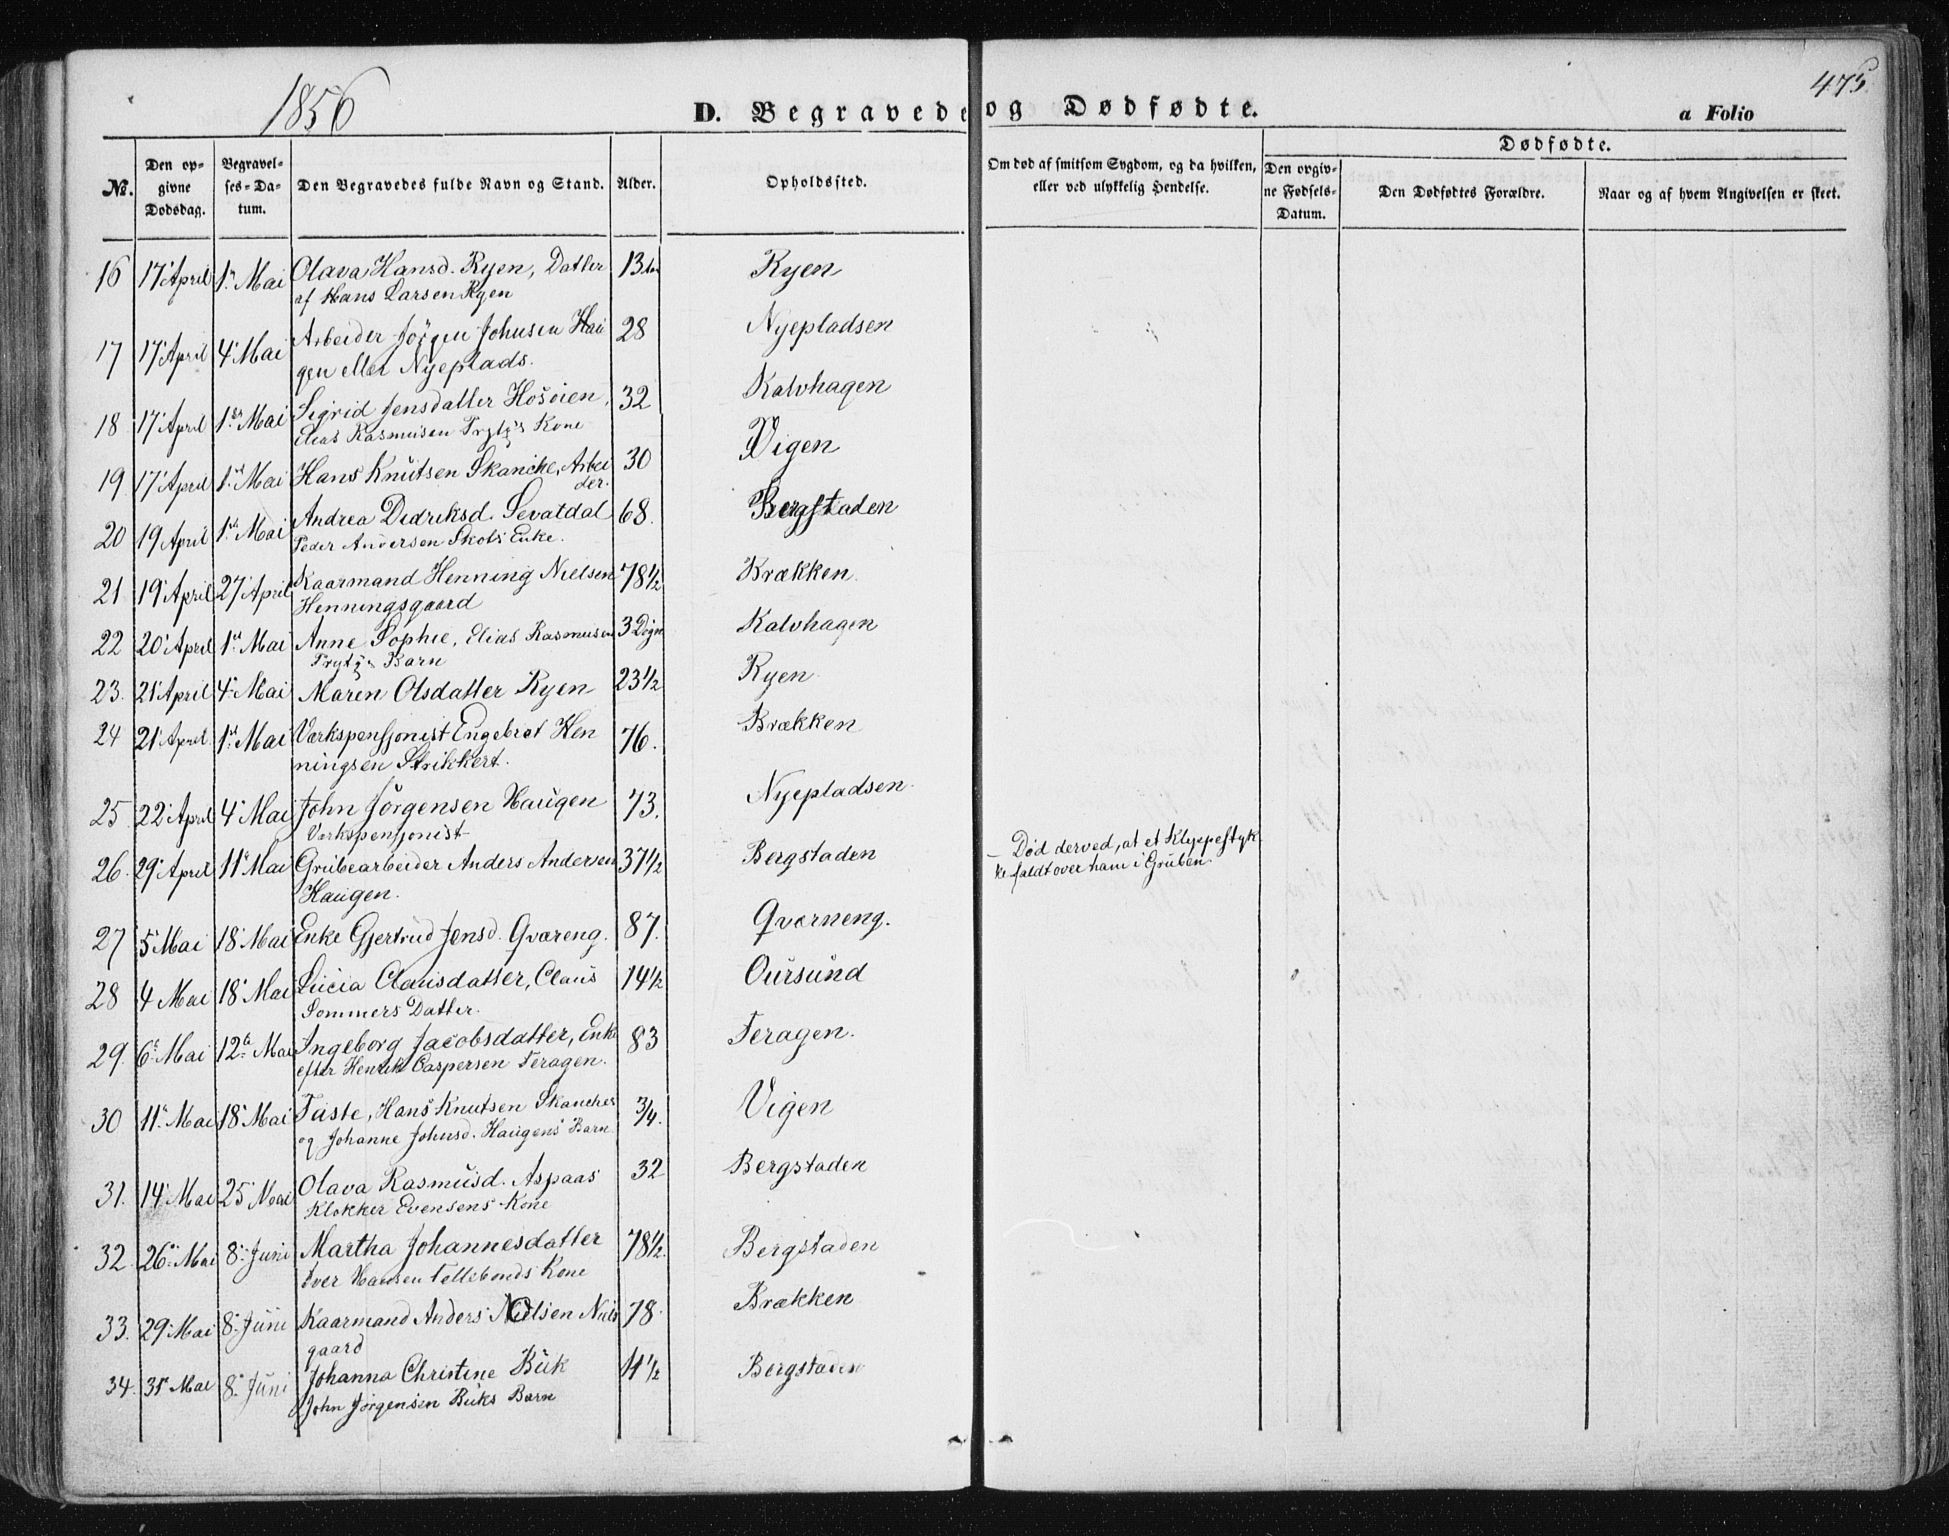 1856
475
D. Begravede og Dødfødte.
a Folio
Dødfødte.
No. Den opgivne Dødsdag. Begravelses-Datum. Den Begravedes fulde Navn og Stand. Alder. Opholdssted. Om død af smitsom Sygdom, og da hvilken, eller ved ulykkelig Hendelse. Den opgivne Fødsels-Datum. Den Dødfødtes Forældre. Naar og af hvem Angivelsen er skeet.
16 17 April 1ste Mai Olava Hansd. Ryen, Datter 13 Ryen
af Hans Larsen Ryen
17 17 April 4 Mai Arbeider Jörgen Johnsen Hau 28 Nyepladsen
gen eller Nyeplads.
18 17 April 1ste Mai Sigrid Jensdatter Hosöien, 32 Kalvhagen
Elias Rasmusen Kone
19 17 April 1ste Mai Hans Knutsen Skancke, Arbei 30 Vigen
der.
20 19 April 1ste Mai Andrea Didriksd. Sevatdal 68. Bergstaden
Peder Andersen Skots Enke.
21 19 April 27 April Kaarmand Henning Nielsen 78½ Brækken
Henningsgaard
22 20 April 1ste Mai Anne Sophie, Elias Rasmusen 3 Døgn Kalvhagen
Barn
23. 21 April 4 Mai Maren Olsdatter Ryen 23½ Ryen
24 21 April 1ste Mai Værkspensjonist Engebret Hen 76. Brækken
ningsen Strikkert.
25 22 April 4 Mai John Jörgensen Haugen 73. Nyepladsen.
Værkspensjonist
26. 29 April 11 Mai Grubearbeider Anders Andersen 37½ Bergstaden – Død derved, at et Klyppestyk
Haugen. ke faldt over ham i Gruben.
27 5 Mai 18 Mai Enke Gjertrud Jensd. Qværeng. 87. Qværneng.
28 4 Mai 18 Mai Lucia Clausdatter, Claus 14½ Oursund
Sommers Datter.
29. 6te Mai 12te Mai Ingeborg Jacobsdatter, Enke 83 Feragen.
efter Henrik Caspersen Feragen.
30 11 Mai 18 Mai Hans Knutsen Skanckes 3/4. Vigen
og Johanne Johnsd. Haugens Barn
31. 14 Mai 25 Mai Olava Rasmusd. Aspaas 32 Bergstaden
Klokker Evensens Kone
32. 26 Mai 8 Juni Martha Johannesdatter 78½. Bergstaden
Iver Hansen Kone
33. 29 Mai 8 Juni Kaarmand Anders Nielsen Niels 78. Brækken
gaard
34. 31 Mai 8 Juni Johanna Christine Buk Bergstaden
John Jörgensen Buks Barn